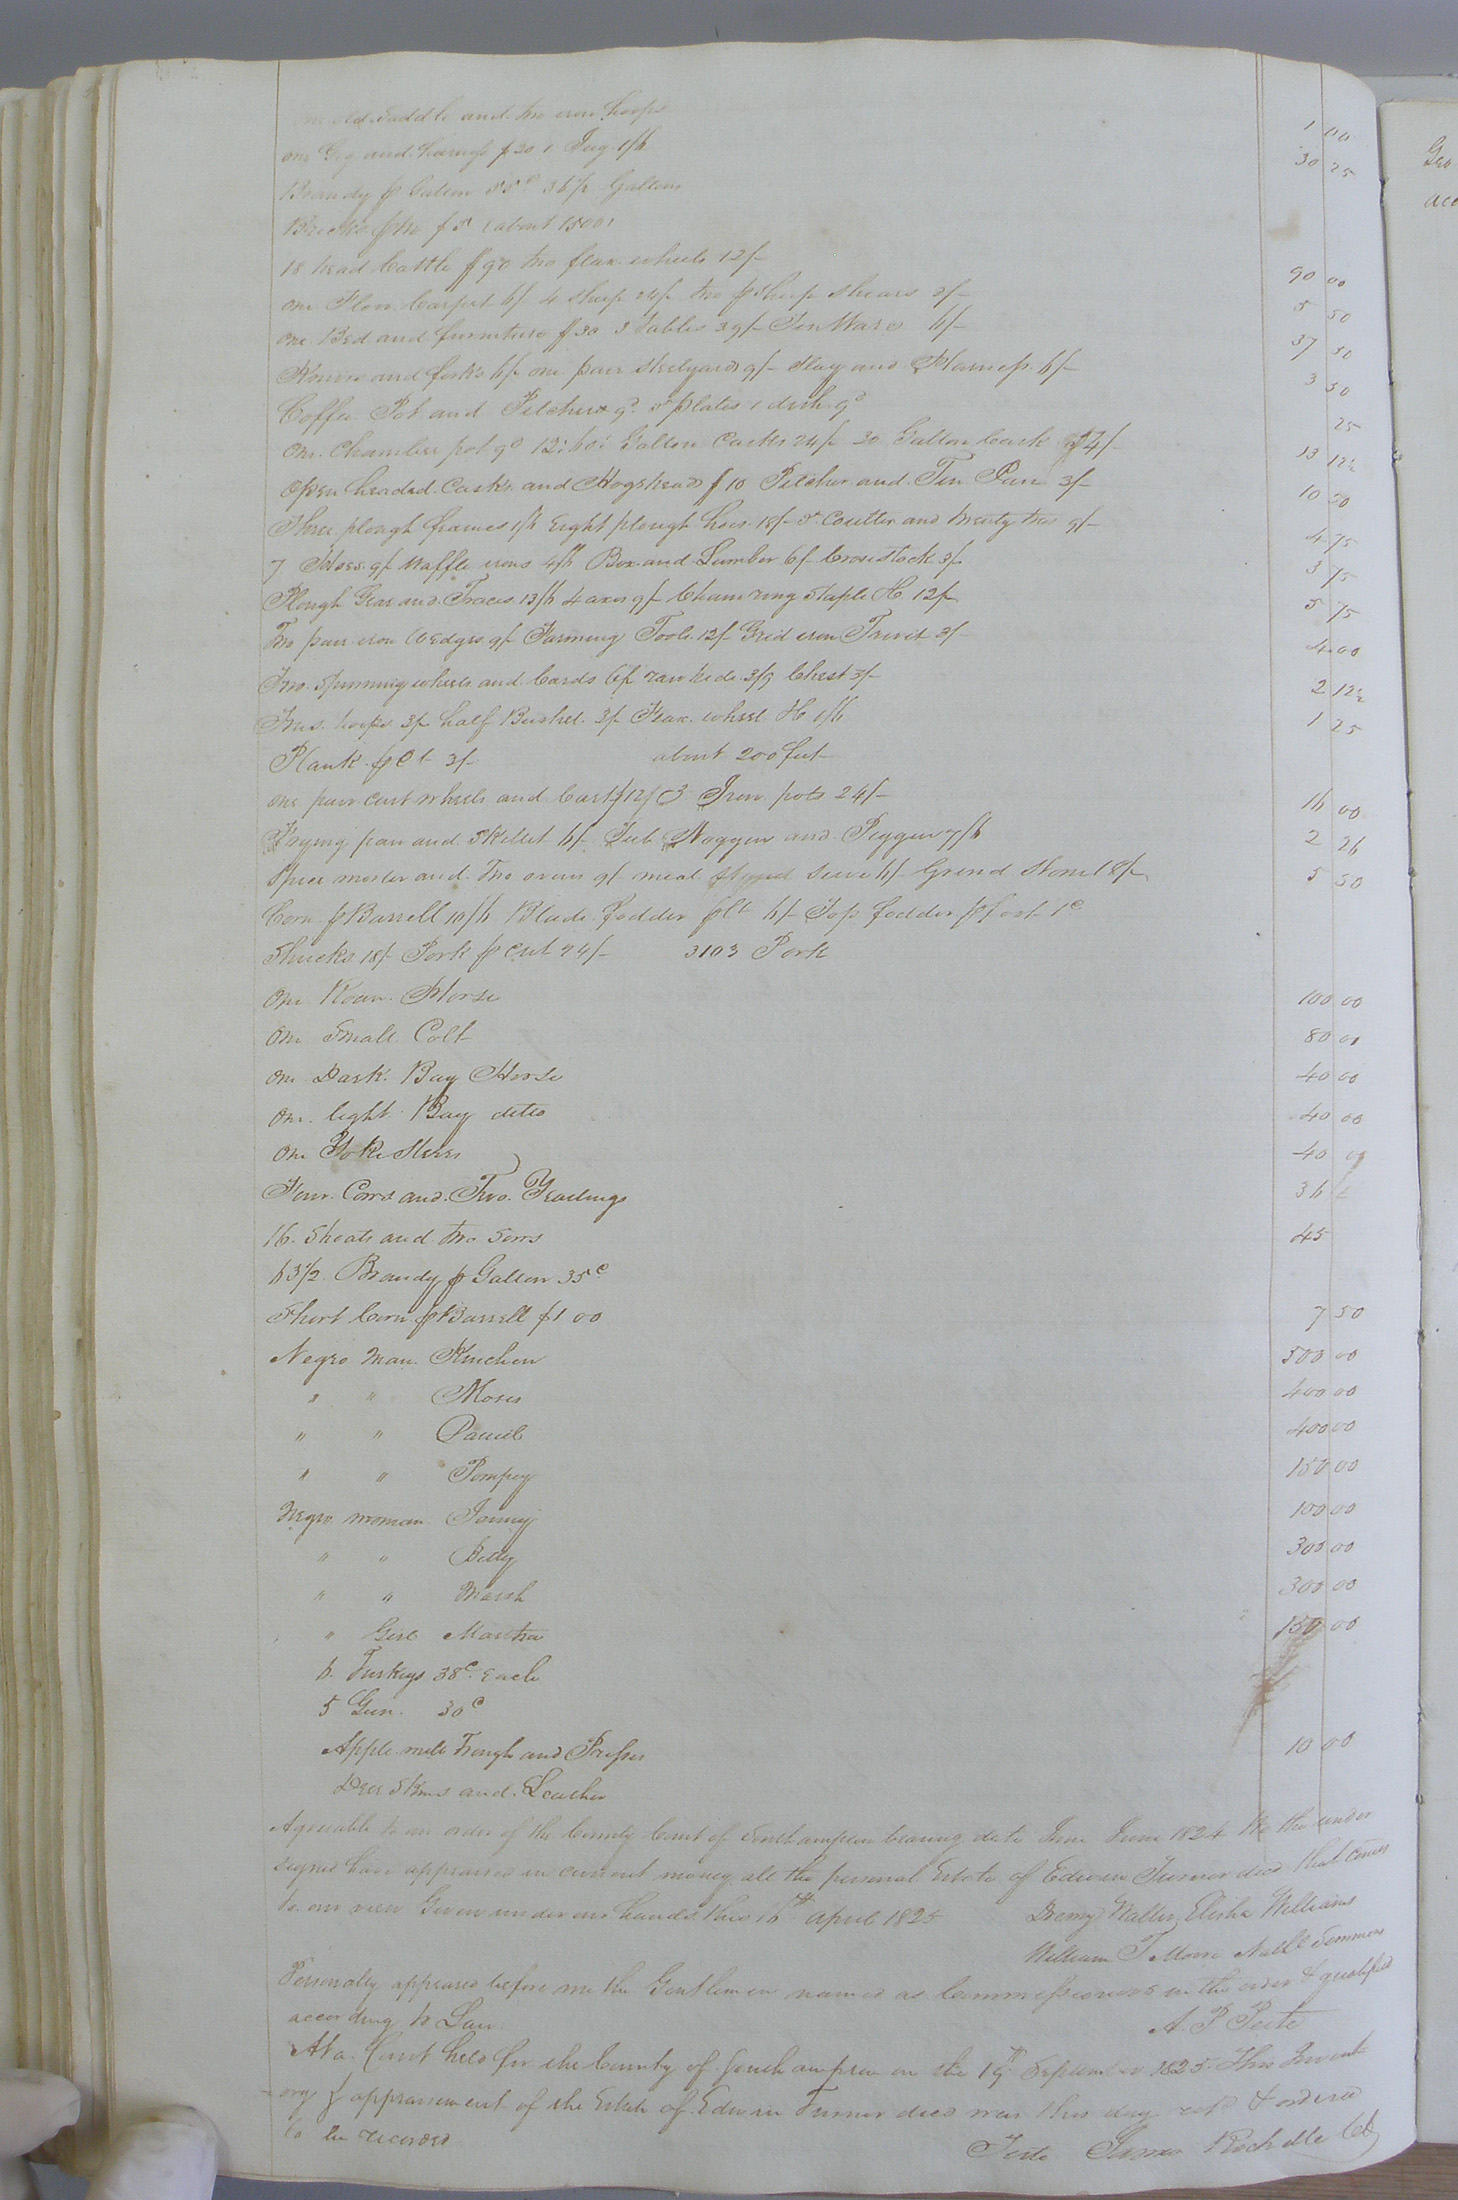 old Saddle and two iron hoops 1 00
one Gig and harness $30 1 Jug 1/6 30 25
Brandy p Gallon 35c 36 1/2 Gallons
Bricks p m $5 about 1500
18 head Cattle $90 two flax wheels 12/- 90 00
one Floor Carpet 6/ 4 Sheep 24/ two p Sheep shears 3/- 5 50
one Bed and furniture $30 3 Tables 39/- Tin Ware 6/- 37 50
Knives and forks 6/ one pair steelyards 9/- Slay and Harness 6/- 3 50
Coffee Pot and Pitcher 9d 5 plates 1 dish 9d 25
one Chamber pot 9d 12 60 Gallon Casks 24/ 30 Gallon Cask 54/- 13 12½
open headed Casks and Hogshead $10 Pitcher and Tin Pan 3/- 10 50
Three plough frames 1/6 Eight plough hoes 18/- 5 Coulter and twenty two 9/- 4 75
7 Hoes 9/ Waffle irons 4/6 Box and Lumber 6/ Crosestock 3/ 3 75
Plough Gear and Traces 13/6 4 axes 9/ Chain ring Staple H 12/ 5 75
Two pair iron Wedges 9/ Farming Tools 12/ Grid iron Trivit 3/- 4 00
Two Spinning wheels and Cards 6/ raw hide 3/9 Chest 3/- 2 12½
hoops 3/ half Bushel 3/ Flax wheel H 1/6 1 25
Plank p Ct 3/ about 200 feet
one pair cart wheels and Cart $12 / 3 Iron pots 24/- 16 00
Frying pan and Skillet 6/- Tub Noggin and Piggin 7/6 2 26
Spice morter and two ovens 9/ meal Sieve 6/- Grind Stone 18/- 5 50
Corn p Barrell 10/6 Blade Fodder p Ct 6/- Top fodder p foot 1c
Shucks 18/ Pork p Cwt 24/- 3103 Pork
One Roan Horse 100 00
One Small Colt 80 00
One Dark Bay Horse 40 00
One light Bay ditto 40 00
One Yoke Steers 40 00
Four Cows and Two Yearlings 36
16 Shoats and two Sows 45
63 1/2 Brandy p Gallon 35c
Short Corn p Barrell $1 00 7 50
Negro man Kinchen 500 00
" " Moses 400 00
" " Daniel 400 00
" " Pompey 150 00
Negro woman 100 00
" " Betty 300 00
" " 300 00
" Girl Martha 150 00
6 Turkeys 38c Each
5 30c
Apple mill Trough and Presses 10 00
Deer Skins and Leather
Agreeable to an order of the County Court of Southampton bearing date June 1824 We the under
signed have appraised in current money all the personal Estate of Edwin Turner decd that came
to our view Given under our hands this 16th april 1825 Waller, Elisha Williams
William T Moore
Personally appeared before me the Gentlemen named as Commissioners in the order & qualified
according to Law A. P. Peete
At a Court held for the County of Southampton on the 19th September 1825 This Invent
ory & appraisement of the Estate of Edwin Turner decd was this day retd & ordered
to be recorded
Teste James Rochelle Clk